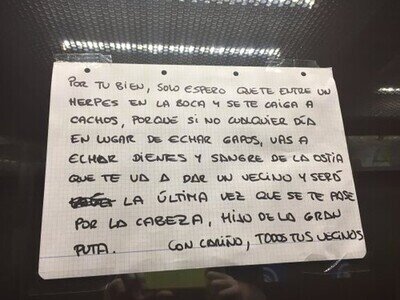 POR TU BIEN, SOLO ESPERO QUE TE ENTRE UN
HERPES EN LA BOCA Y SE TE CAIGA A
CACHOS, PORQUE SI NO CUALQUIER DÍA
EN LUGAR DE ECHAR GAPOS, VAS A
ECHAR DIENES Y SANGRE DE LA OSTIA
QUE TE VA A DAR UN VECINO Y SERÁ
LA ÚLTIMA VEZ QUE SE TE PASE
POR LA CABEZA, HIJO DE LA GRAN
PUTA. CON CARIÑO, TODOS TUS VECINOS